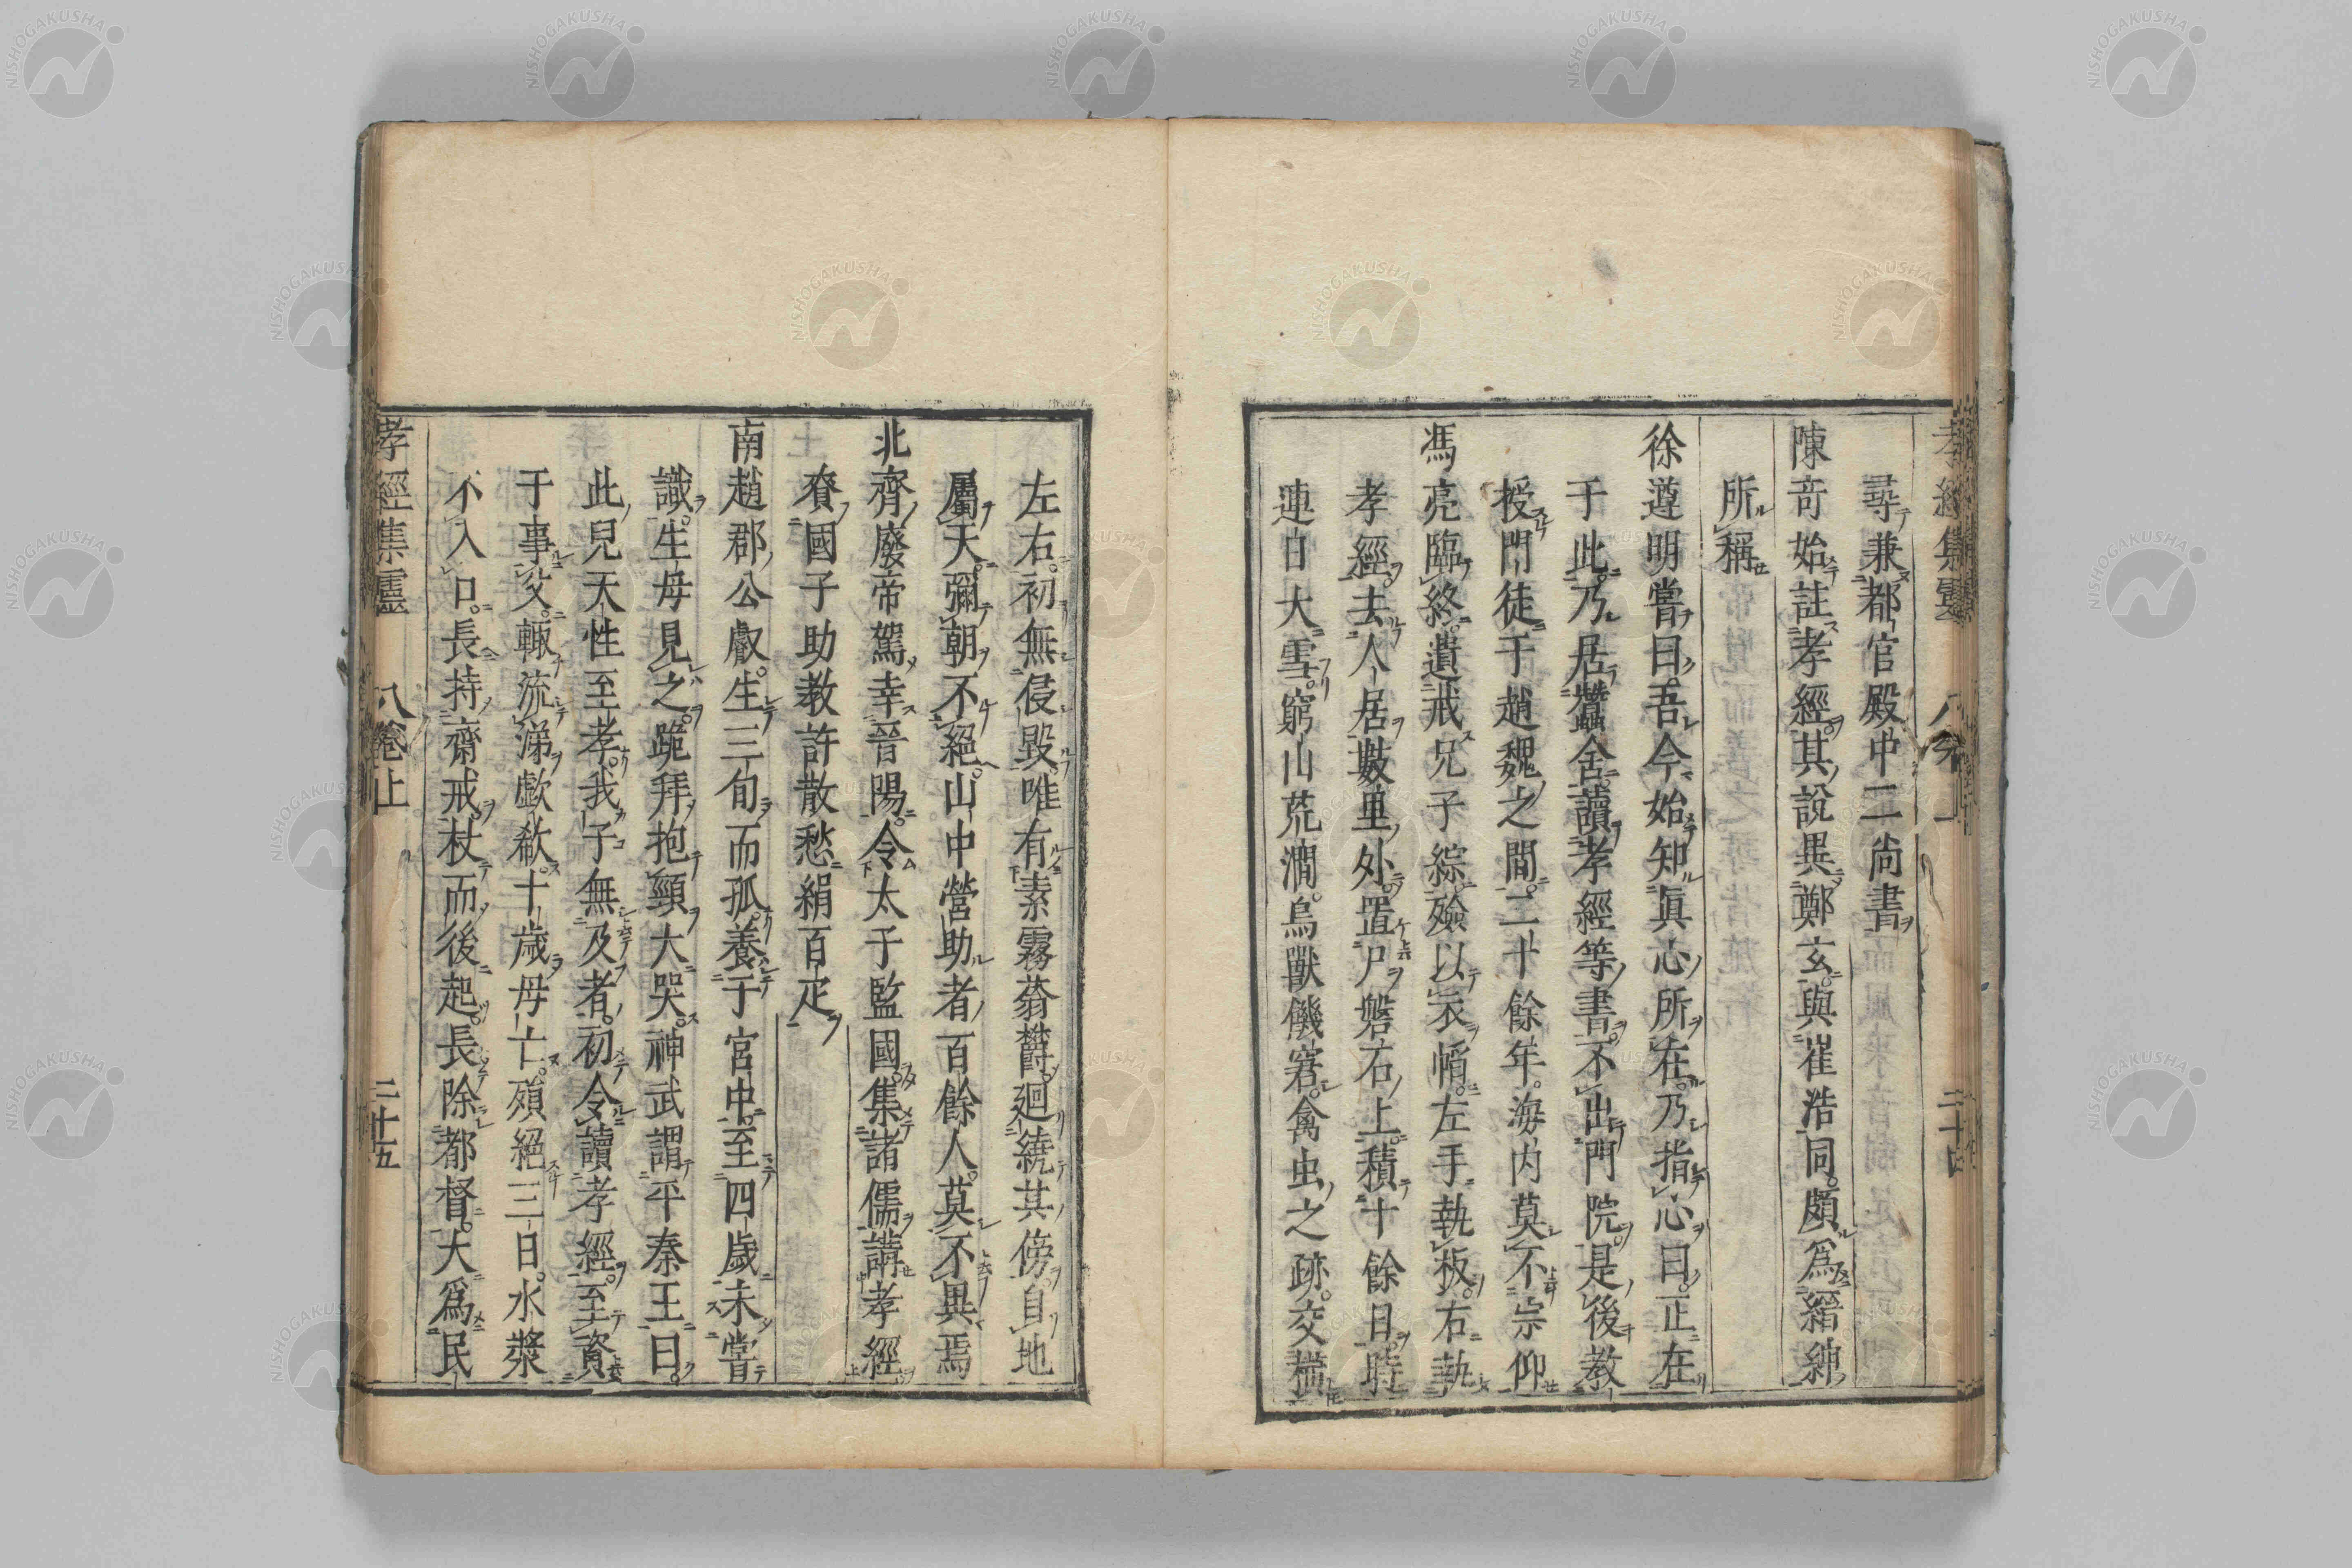 孝經集靈 八卷上 二十四
尋兼都官殿中二尚書
陳奇始註孝經其說異鄭玄與崔浩同頗爲縉紳
所稱
徐遵明嘗曰吾今始知眞心所在乃指心曰正在
于此乃居蠶舍讀孝經等書不出門院是後教
授門徒于趙魏之間二十餘年海内莫不宗仰
馮亮臨終遺戒兄子綜殮以衣㡌左手執板右執
孝經去人居數里外置尸磐石上積十餘日時
連日大雪窮山荒澗鳥獸僟窘禽虫之跡交橫
左右初無侵毀唯有素霧蓊欝迴繞其傍自地
屬天彌朝不絕山中營助者百餘人莫不異焉
北齊廢帝駕幸晉陽令太子監國集諸儒講孝經
賚國子助教許散愁絹百疋
南趙郡公叡生三旬而孤養于宮中至四歲未嘗
識生母見之跪拜抱頸大哭神武謂平秦王曰
此兒天性至孝我子無及者初令讀孝經至資
于事父輒流涕歔欷十歲母亡殞絕三日水漿
不入口長持齋戒杖而後起長除都督大爲民
孝經集靈 八卷上 二十五
NISHOGAKUSHA